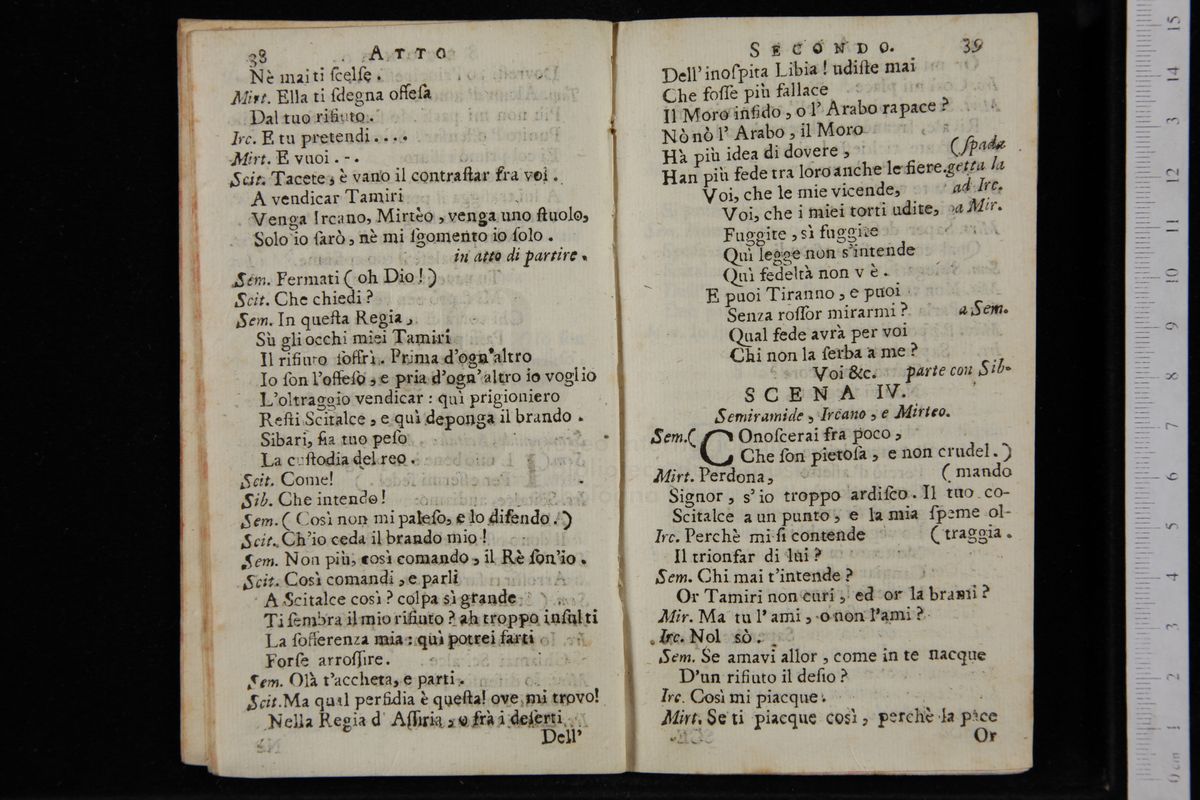 38 ATTO
Nè mai ti ſcelſe.
Mirt. Ella ti ſdegna offeſa
Dal tuo rifiuto.
Irc. E tu pretendi....
Mirt. E vuoi.-.
Scit. Tacete, è vano il contraſtar fra voi.
A vendicar Tamiri
Venga Ircano, Mirtèo, venga uno ſtuolo,
Solo io ſarò, nè mi ſgomento io ſolo.
in atto di partire.
Sem. Fermati (oh Dio!)
Scit. Che chiedi?
Sem. In queſta Regia,
Sù gli occhi miei Tamiri
Il rifiuto ſoffrì. Prima d'ogn'altro
Io ſon l'offeſo, e pria d'ogn'altro io voglio
L'oltraggio vendicar: quì prigioniero
Reſti Scitalce, e quì deponga il brando.
Sibari, ſia tuo peſo
La cuſtodia del reo.
Scit. Come!
Sib. Che intendo!
Sem. (Così non mi paleſo, e lo difendo.)
Scit. Ch'io ceda il brando mio!
Sem. Non più, così comando, il Rè ſon'io.
Scit. Così comandi, e parli
A Scitalce così? colpa sì grande
Ti ſembra il mio rifiuto? ah troppo inſulti
La ſofferenza mia: quì potrei farti
Forſe arroſſire.
Sem. Olà t'accheta, e parti.
Scit. Ma qual perfidia è queſta! ove mi trovo!
Nella Regia d' Aſſiria, o frà i deſerti
Dell'
SECONDO. 39
Dell' inoſpita Libia! udiſte mai
Che foſſe più fallace
Il Moro infido, o l' Arabo rapace?
Nò nò l' Arabo, il Moro
Hà più idea di dovere, (ſpada
Han più fede tra loro anche le fiere. getta la
Voi, che le mie vicende, ad Irc.
Voi, che i miei torti udite, a Mir.
Fuggite, sì fuggite
Quì legge non s'intende
Quì fedeltà non v è.
E puoi Tiranno, e puoi
Senza roſſor mirarmi? a Sem.
Qual fede avrà per voi
Chi non la ſerba a me?
Voi &c. parte con Sib.
SCENA IV.
Semiramide, Ircano, e Mirteo.
Sem. (COnoſcerai fra poco,
Che ſon pietoſa, e non crudel.)
Mirt. Perdona, (mando
Signor, s'io troppo ardiſco. Il tuo co-
Scitalce a un punto, e la mia ſpeme ol-
Irc. Perchè mi ſi contende (traggia.
Il trionfar di lui?
Sem. Chi mai t'intende?
Or Tamiri non curi, ed or la brami?
Mir. Ma tu l' ami, o non l'ami?
Irc. Nol sò.
Sem. Se amavi allor, come in te nacque
D'un rifiuto il deſio?
Irc. Così mi piacque.
Mirt. Se ti piacque così, perchè la pace
Or